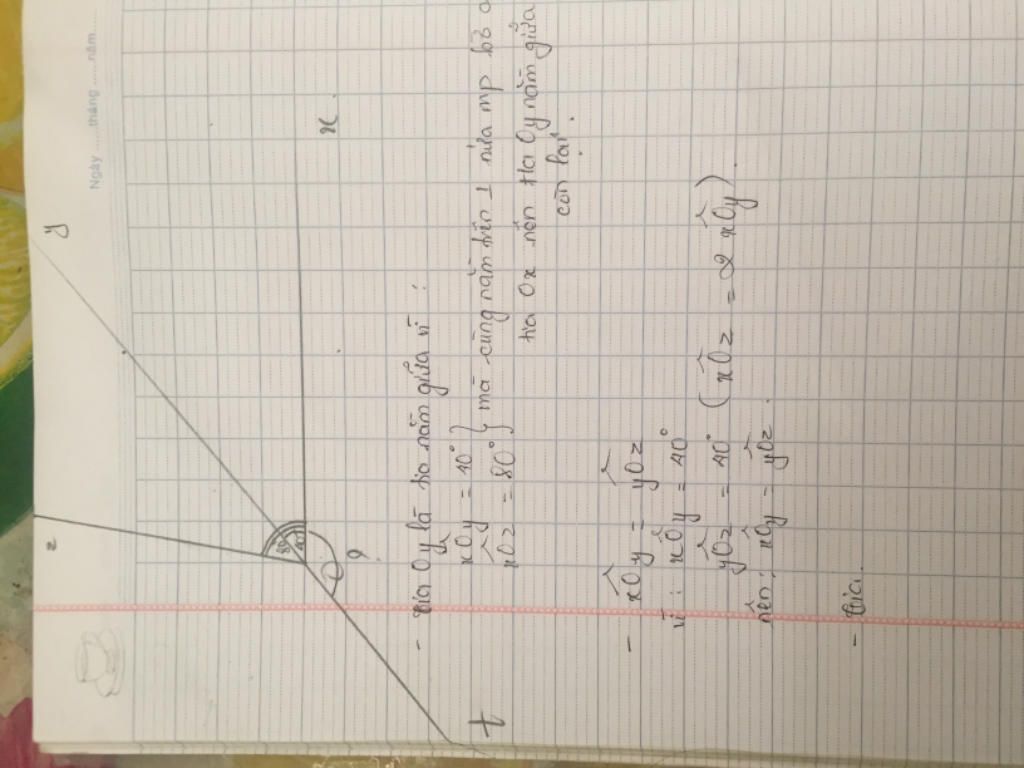 Ngày ......tháng ......năm
z
y
80°
40°
O
x
t
- Tia Oy là tia nằm giữa vì :
xÔy = 40°
xÔz = 80° } mà cùng nằm trên 1 nửa mp bờ
tia Ox nên tia Oy nằm giữa
còn lại.
- xÔy = yÔz
vì : xÔy = 40°
yÔz = 40° (xÔz = 2 xÔy).
nên : xÔy = yÔz.
- Tia.